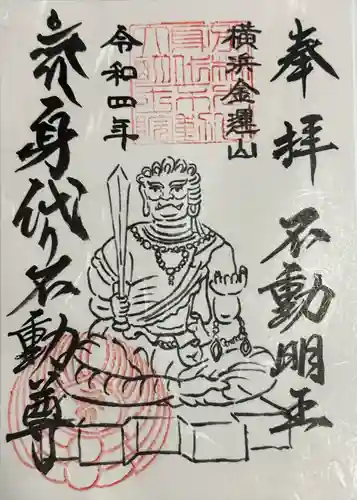 奉拝
不動明王
横浜金運山
令和四年
身代り不動尊